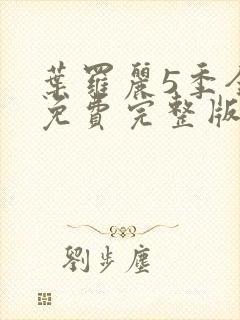 葉羅麗5季全
免費完整版
劉步塵